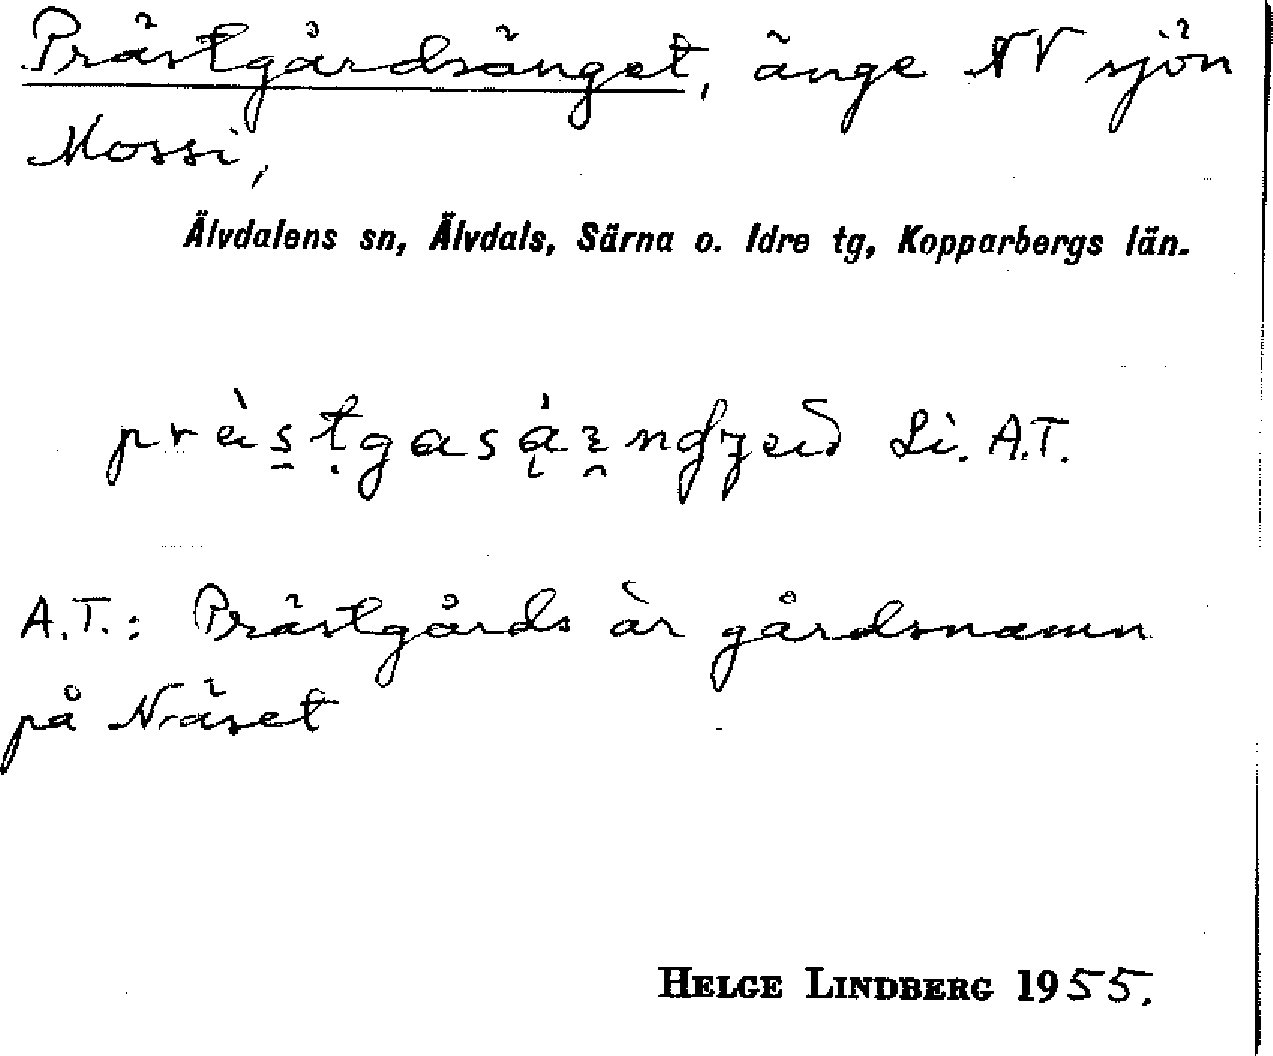 Prästgårdsänget, änge NV sjön
Mossi,
Älvdalens sn, Älvdals, Särna o. Idre tg, Kopparbergs län.
Li. A.T.
A.T.: Prästgårds är gårdsnamn
på Näset
HELGE LINDBERG 1955.